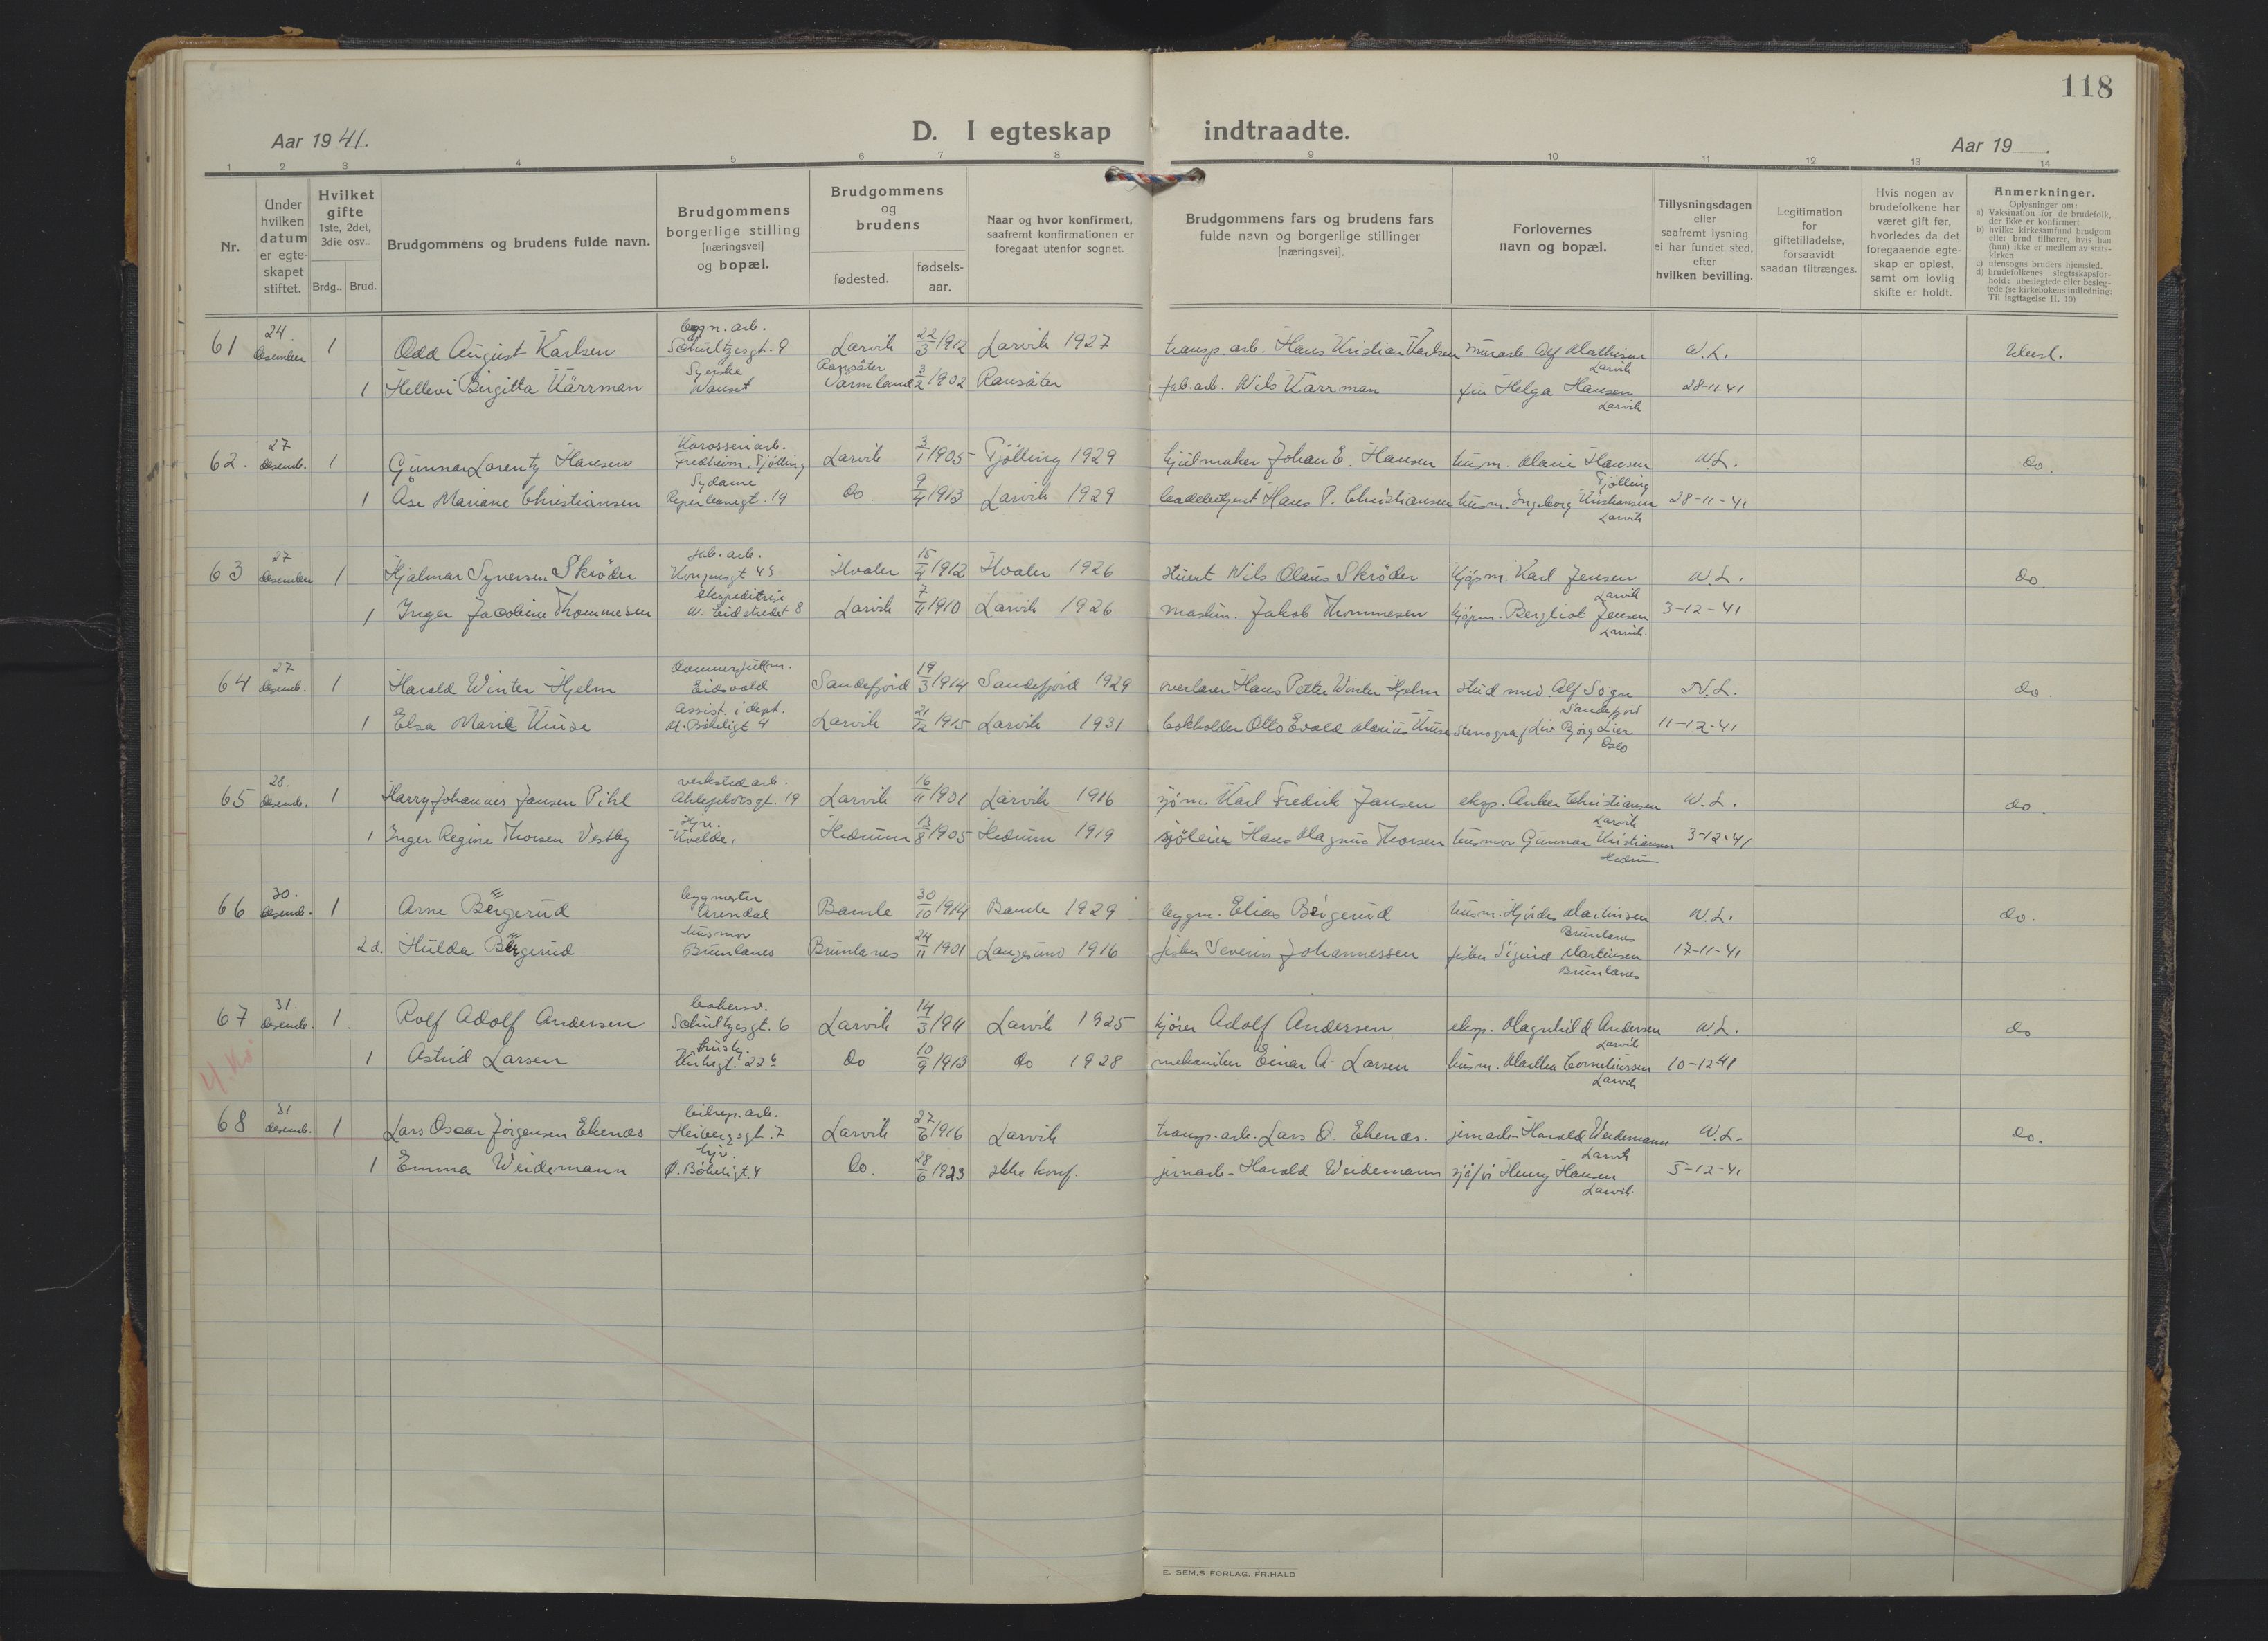 118
Aar 1941.
D. I egteskap indtraadte.
Aar 19 .
1 2 3 4 5 6 7 8 9 10 11 12 13 14
Nr.
Under
hvilken
datum
er egte-
skapet
stiftet.
Hvilket
gifte
1ste, 2det,
3die osv..
Brdg.. Brud.
Brudgommens og brudens fulde navn.
Brudgommens
borgerlige stilling
[næringsvei]
og bopæl.
Brudgommens
og
brudens
fødested.
fødsels-
aar.
Naar og hvor konfirmert,
saafremt konfirmationen er
foregaat utenfor sognet.
Brudgommens fars og brudens fars
fulde navn og borgerlige stillinger
[næringsvei].
Forlovernes
navn og bopæl.
Tillysningsdagen
eller
saafremt lysning
ei har fundet sted,
efter
hvilken bevilling.
Legitimation
for
giftetilladelse,
forsaavidt
saadan tiltrænges.
Hvis nogen av
brudefolkene har
været gift før,
hvorledes da det
foregaaende egte-
skap er opløst,
samt om lovlig
skifte er holdt.
Anmerkninger.
Oplysninger om:
a) Vaksination for de brudefolk,
der ikke er konfirmert
b) hvilke kirkesamfund brudgom
eller brud tilhører, hvis han
(hun) ikke er medlem av stats-
kirken
c) utensogns bruders hjemsted.
d) brudefolkenes slegtsskapsfor-
hold: ubeslegtede eller besleg-
tede (se kirkebokens indledning:
Til iagttagelse II. 10)
24 bygn. arb. 22
61 desember 1 Odd August Karlsen Schultzesgt. 9 Larvik 3 1912 Larvik 1927 transp. arb. Hans Kristian Karlsen murarb. Alf Mathisen Larvik W.L. Ubesl.
Syerske Ransäter 3
1 Hellevi Birgitta Kärrman Nanset Värmland 2 1902 Ransäter fab. arb. Nils Kärrman fru Helga Hansen Larvik 28-11-41
27 Karosseriarb. 3
62. desemb. 1 Gunnar Lorentz Hansen Fredheim, Tjølling Larvik 1 1905 Tjølling 1929 hjulmaker Johan E. Hansen husm. Marie Hansen Tjølling W.L. do.
Sydame 9
1 Åse Mariane Christiansen Reperbanegt. 19 do. 4 1913 Larvik 1929 Hans P. Christiansen husm. Ingeborg Kristiansen Larvik 28-11-41
27 fab. arb. 15
63 desember 1 Hjalmar Syversen Skrøder Kongensgt 45 Hvaler 4 1912 Hvaler 1926 Nils Olaus Skrøder kjøpm. Karl Jensen Larvik W.L. do.
ekspeditrise 7
1 Inger Jacobine Thommesen 8 Larvik 11 1910 Larvik 1926 maskin. Jakob Thommesen kjøpm. Bergliot Jensen Larvik. 3-12-41
27 dommerfullm. 19
64 desemb. 1 Harald Winter-Hjelm Eidsvold Sandefjord 3 1914 Sandefjord 1929 overlærer Hans Petter Winter Hjelm stud med. Alf Sogn Sandefjord N.L. do.
Assist. i dept. 21
1 Elsa Marie Kruse M. Bøkeligt 4 Larvik 12 1915 Larvik 1931 bokholder Otto Evald Marius Kruse stenograf Liv Bjørg Lier Oslo 11-12-41
28. verkstedarb. 16
65 desemb. 1 Harry Johannes Jansen Pihl Ahlefeldsgt. 19 Larvik 11 1901 Larvik 1916 sjøm. Karl Fredrik Jansen eksp. Anker Christiansen Larvik W.L. do.
Hjv. 13
1 Inger Regine Thorsen Vestby Kvelde, Hedrum 8 1905 Hedrum 1919 Hans Magnus Thorsen husmor Gunnar Kristiansen Hedrum 3-12-41
30. bygmester 30
66 desemb. 1 Arne Bergerud Arendal Bamle 10 1914 Bamle 1929 byggm. Elias Bergerud husm. Hjørdis Martinsen Brunlanes W.L. do.
husmor 24
2d. Hulda Bergerud Brunlanes Brunlanes 11 1901 Langesund 1916 fisker Severin Johannessen fisker Sigurd Martinsen Brunlanes 17-11-41
31. bakersv. 14
67 desemb. 1 Rolf Adolf Andersen Schultzesgt. 6 Larvik 3 1911 Larvik 1925 kjører Adolf Andersen eksp. Magnhild Andersen Larvik W.L. do
hushj. 10
1 Astrid Larsen Kirkegt. 22 b do 9 1913 do 1928 mekaniker Einar A. Larsen husm. Martha Corneliussen Larvik 10-12-41
31 bilrep. arb. 27
68 desemb. 1 Lars Oscar Jørgensen Ekenæs Heibergsgt. 7 Larvik 6 1916 Larvik transp. arb. Lars O. Ekenæs. jernarb. Harald Weidemann Larvik W.L. do.
hjv. 28
1 Emma Weidemann Ø. Bøkeligt. 4 do. 6 1923 ikke konf. jernarb. Harald Weidemann Henry Hansen Larvik. 5-12-41
E. SEM,S FORLAG, FR.HALD